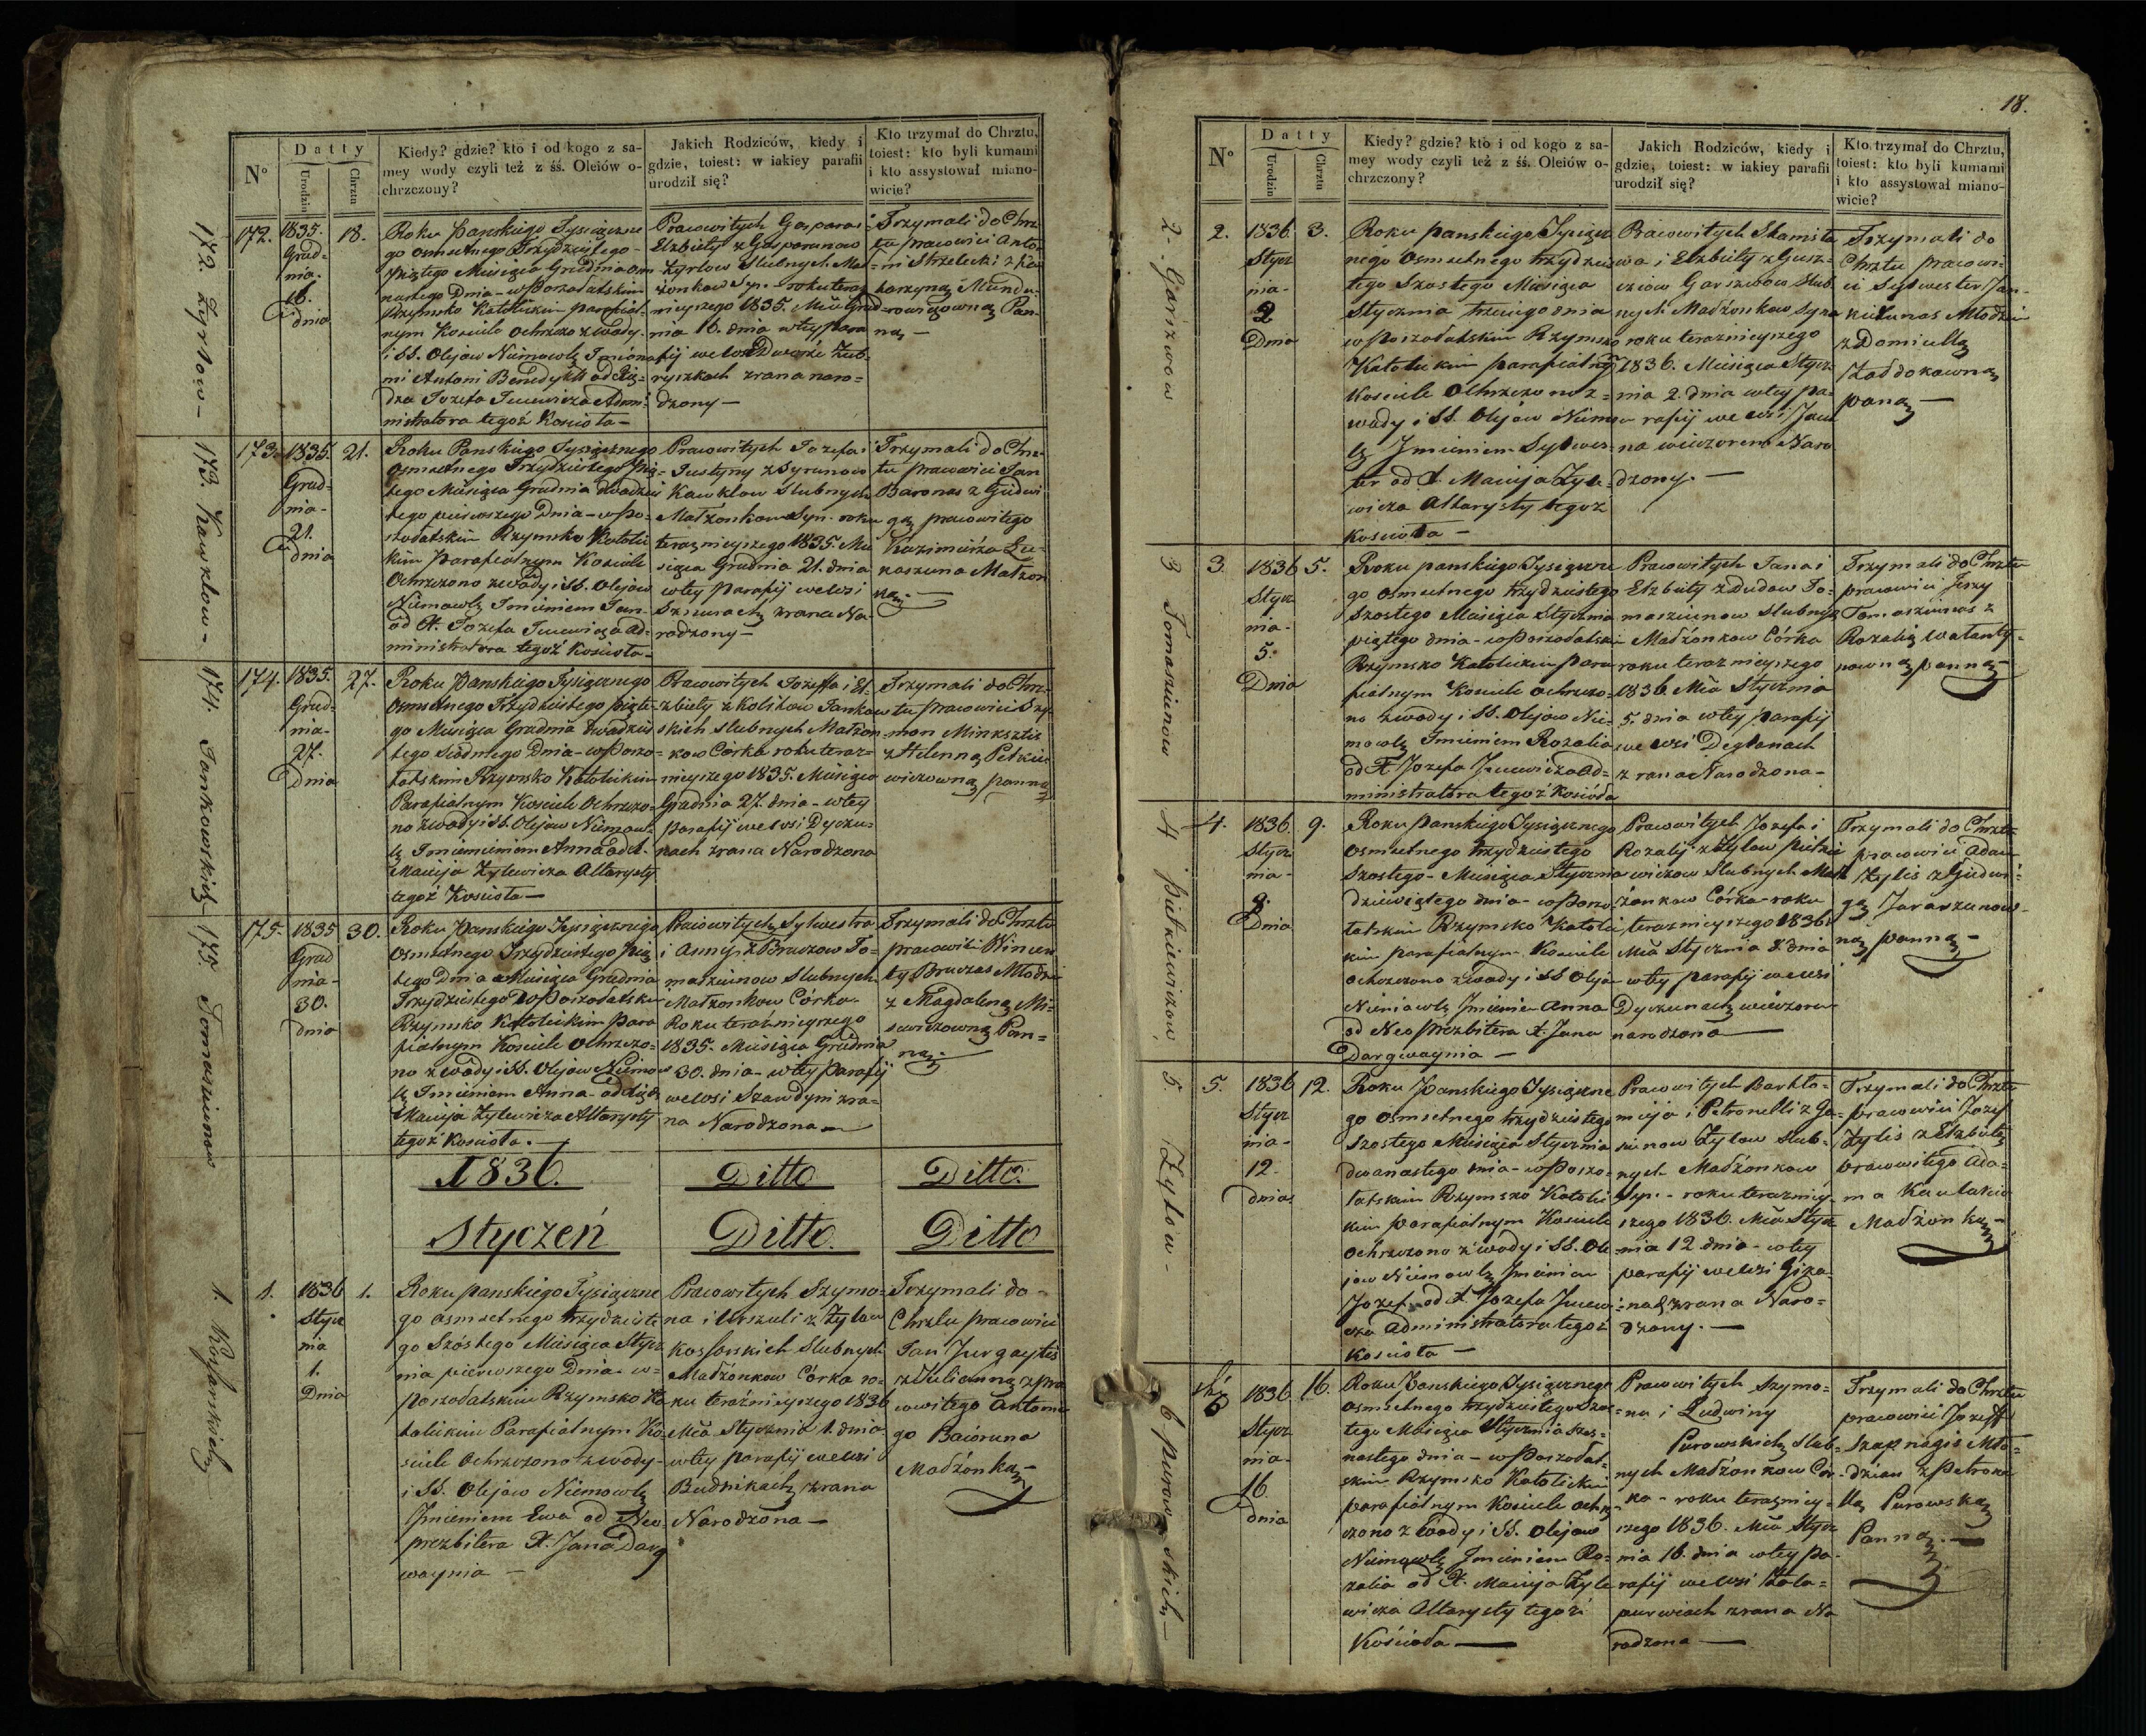 18.
N°
Datty
Urodzin
Chrztu
Kiedy? gdzie? kto i od kogo z sa-
mey wody czyli też z śś. Oleiów o-
chrzczony?
Jakich Rodziców, kiedy i
gdzie, toiest: w iakiey parafii
urodził się?
Kto trzymał do Chrztu,
toiest: kto byli kumami
i kto assystował miano-
wicie?
172. Żyrłow
172.
1835.
Grud=
nia.
16.
dnia
18.
Roku Panskiego Tysiączne
go osmsetnego Trzydziestego
piątego Miesiąca Grudnia osm
nastego Dnia w Poszołatskim
Rzymsko Katolickim parafial
nym Kosciele ochrzczo z wody
i SS. Olejow Niemowlę Imiona
mi Antoni Benedykt od Xię=
dza Jozefa Jucewicza Admi=
nistratora tegoż Kosciola
Pracowitych Gaspara i
Elzbiety z Gasparunow
Żyrłow Slubnych Mał=
żonkow Syn roku teraz
nieyszego 1835. Mca Grud
nia 16. dnia w tey para
fij we
ryszkach zrana naro=
dzony
Trzymali do Chrz
tu pracowici Anto=
ni Strzelecki z Ka
tarzyną
Pan=
ną
173. Kawklow
173.
1835.
Grud=
nia-
21.
dnia
21.
Roku Panskiego Tysiącznego
Osmsetnego Trzydziestego pią=
tego Miesiąca Grudnia dwadzies
tego pierwszego Dnia w Po=
szołatskim Rzymsko Katolic
kim Parafialnym Kosciele
Ochrzczono z wody i SS. Olejow
Niemowlę Imieniem Jan
od X. Jozefa Jucewicza Ad=
ministratora tegoż Kosciola
Pracowitych Jozefa i
Justyny z Syrunow
Kawklow Slubnych
Małżonkow Syn roku
teraznieyszego 1835. Mie
siąca Grudnia 21. dnia
w tey Parafij we wsi
zrana Na=
rodzony
Trzymali do Chrz=
tu pracowici Jan
Baronas z Gudwi
gą pracowitego
Kazimierza Łu=
kaszuna Małżon
ką
174. Jankowskich
174.
1835.
Grud=
nia-
27.
Dnia
27.
Roku Panskiego Tysiącznego
Osmsetnego Trzydziestego piąte
go Miesiąca Grudnia dwadzies
tego siodmego Dnia w Poszo=
łatskim Rzymsko Katolickim
Parafialnym Kosciele Ochrzczo=
no z wody i SS. Olejow Niemow=
lę Imieniem Anna od X.
Macieja Żylewicza Altarysty
tegoż Kosciola
Pracowitych Jozeffa i El=
zbiety z Kolisow Jankow
skich slubnych Małżon=
kow Corka roku teraz=
nieyszego 1835. Miesiąca
Grudnia 27. dnia w tey
parafij we wsi Dyczu=
nach zrana Narodzona
Trzymali do Chrz=
tu pracowici Szy=
mon Minksztis
z Helenną Petkie
wiczowną panną
175. Tomaszunow
175.
1835
Grud
nia-
30.
dnia
30.
Roku Panskiego Tysiącznego
Osmsetnego Trzydziestego pią
tego Dnia Miesiąca Grudnia
Trzydziestego w Poszołatskim
Rzymsko Katolickim Para
fialnym Kosciele Ochrzczo=
no z wody i SS. Olejow Niemow
lę Imieniem Anna od Xiędza
Macieja Żylewicza Altarysty
tegoż Kosciola.
Pracowitych Sylwestra
i Anny z Bruczow To=
maszunow Slubnych
Małżonkow Córka
Roku teraźnieyszego
1835. Miesiąca Grudnia
30. dnia w tey Parafij
we wsi Szawdyni zra=
na Narodzona
Trzymali do Chrztu
pracowici Wincen
ty Bruczas Młodzie
z Magdaleną Mi=
sewiczowną Pan=
ną
1836. Ditto Ditto.
Styczeń Ditto. Ditto
1. Kossarskich
1.
1836
Stycz
nia
1.
Dnia
1.
Roku panskiego Tysiączne
go osmsetnego trzydzieste
go Szóstego Miesiąca Stycz
nia pierwszego Dnia w=
Poszołatskim Rzymsko Ka
tolickim Parafialnym Ko
sciele Ochrzczono z wody
i SS. Olejow Niemowlę
Imieniem Ewa od Neo=
prezbitera X. Jana Darg
waynia
Pracowitych Szymo=
na i Urszuli z Żyłow
Kossarskich Slubnych
Małżonkow Córka ro=
ku teráznieyszego 1836
Mca Stycznia 1. dnia
w tey parafij we wsi
Budnikach zrana
Narodzona
Trzymali do
Chrztu pracowici
Jan Jurgaytis
z Julianną z pra
cowitego Antonie
go Baioruna
Małżonką
2. Garszwow
2.
1836.
Stycz
nia-
2
Dnia
3.
Roku panskiego Tysiącz
nego Osmsetnego trzydzies
tego Szostego Miesiąca
Stycznia trzeciego dnia
w Poszołatskim Rzymsko
Katolickim parafialnym
Kosciele Ochrzczono z=
wody i SS. Olejow Niemow
lę Imieniem Sylwes=
ter od X. Macieja Żyle=
wicza Altarysty tegoz
Kosciola
Pracowitych Stanisla
wa i Elzbiety z Gusz=
cziow Garszwow Slub
nych Małżonkow Syna
roku teraznieyszego
1836. Miesiąca Stycz
nia 2. dnia w tey pa=
rafij we wsi
na wieczorem Naro
dzony.
Trzymali do
Chrztu pracowi=
ci Sylwester Jan=
kiunas Młodzie
z Domicellą
panną
3 Tomaszunow
3.
1836
Stycz
nia-
5.
Dnia
5.
Roku panskiego Tysiączne
go osmsetnego trzydziestego
Szostego Miesiąca Stycznia
piątego dnia w Poszołatski
Rzymsko Katolickim para
fialnym Kosciele ochrzczo=
no z wody i SS. Olejow Nie=
mowlę Imieniem Rozalia
od X. Jozefa Jucewicza Ad=
ministratora tegoż Kosciola
Pracowitych Jana i
Elzbiety z Dudow To=
maszunow Slubnych
Małżonkow Córka
roku teraznieyszego
1836 Mca Stycznia
5. dnia w tey Parafij
we wsi Degłanach
z rana Narodzona
Trzymali do Chrztu
pracowici Jerzy
Tomaszunas z
Rozalią Walanty=
nowną panną
4 Pietkiewiczow
4.
1836
Stycz
nia-
8.
Dnia
9.
Roku panskiego Tysiącznego
osmsetnego trzydziestego
Szostego Miesiąca Stycznia
dziewiątego dnia w Poszo=
łatskim Rzymsko Katolic
kim parafialnym Kosciele
ochrzczono z wody i SS Olejo
Niemowlę Imieniem Anna
od Neoprezbitera X. Jana
Dargwaynia
Pracowitych Jozefa i
Rozalij z Żyłow Pietkie
wiczow Slubnych Mał
żonkow Córka roku
teraznieyszego 1836
Mca Stycznia 8 dnia
w tey parafij we wsi
Dyczunach wieczorem
narodzona
Trzymali do Chrztu
pracowici Adam
Żylis z Gudwi=
gą Jaraszunow=
ną panną
5. Żyłow
5.
1836
Stycz
nia-
12.
dnia
12.
Roku Panskiego Tysiączne
go osmsetnego trzydziestego
Szostego Miesiąca Stycznia
dwanastego dnia w Poszo=
łatskim Rzymsko Katolic
kim parafialnym Kosciele
Ochrzczono z wody i SS. Ole
jow Niemowlę Imieniem
Jozef od X Jozefa Jucewi=
cza Administratora tegoż
Kosciola
Pracowitych Barttło=
mieja i Petronelli z Ga=
sunow Żyłow Slub=
nych Małżonkow
Syn - roku terazniey=
szego 1836. Mca Stycz
nia 12 dnia w tey
parafij we wsi Giza=
nach zrana Naro=
dzony.
Trzymali do Chrztu
pracowici Jozef
Żylis z Elzbietą
pracowitego Ada=
ma
Małżonką
6 Purowskich
6
1836
Stycz
nia-
16.
dnia
16.
Roku Panskiego Tysiącznego
osmsetnego trzydziestego Szos
tego Miesiąca Stycznia szes=
nastego dnia w Poszołat=
skim Rzymsko Katolickim
parafialnym Kosciele ochrz
czono z wody i SS. Olejow
Niemowlę Imieniem Ro=
zalia od X. Macieja Żyle
wicza Altarysty tegoż
Kościoła
Pracowitych Szymo=
na i Ludwiny
Purowskich Slub=
nych Małżonkow Cór=
ka - roku terazniey=
szego 1836. Mca Stycz
nia 16. dnia w tey pa=
rafij we wsi
zrana Na
rodzona
Trzymali do Chrztu
pracowici Jozeff
Szapnagis Mło=
dzian z Petrone
llą Purowską
Panną.